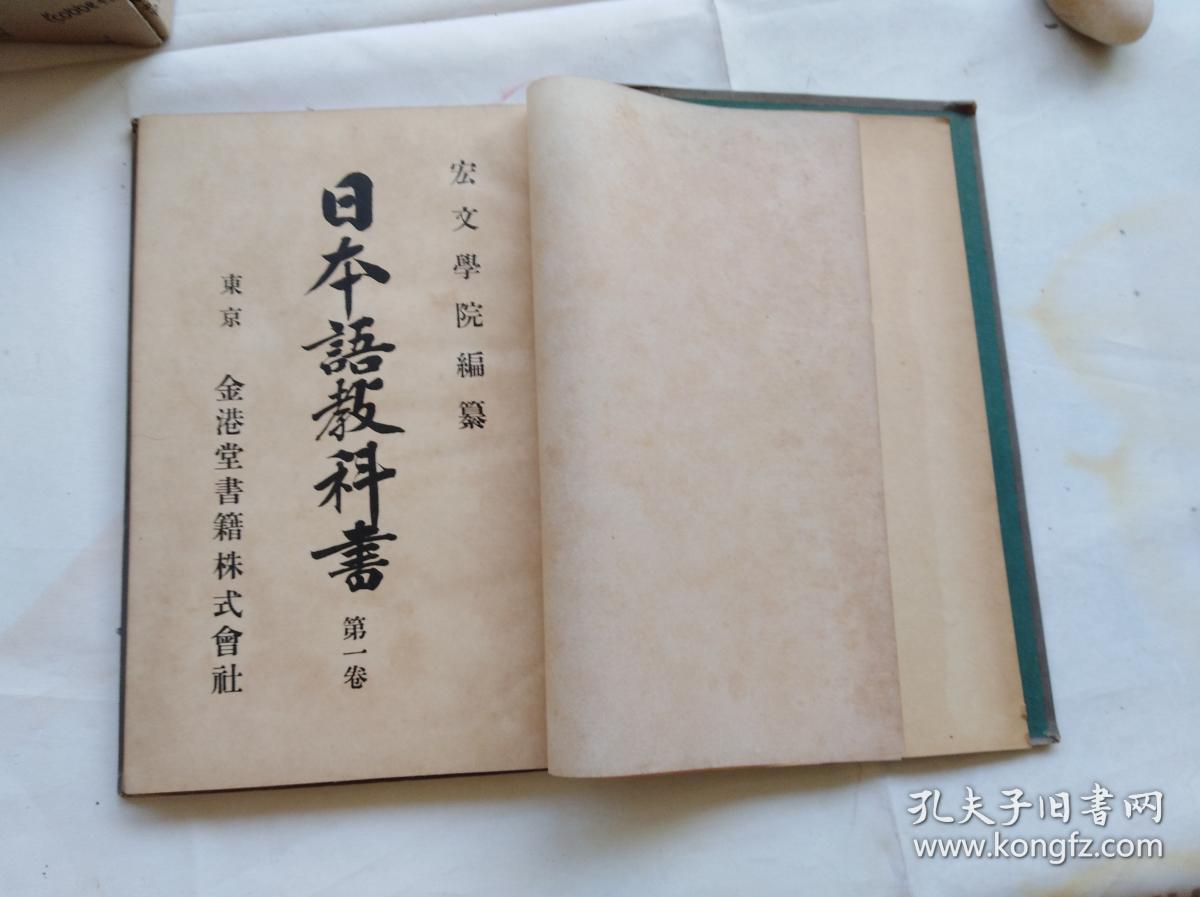 宏文學院編纂
日本語教科書 第一卷
東京 金港堂書籍株式會社
孔夫子旧书网
www.kongfz.com